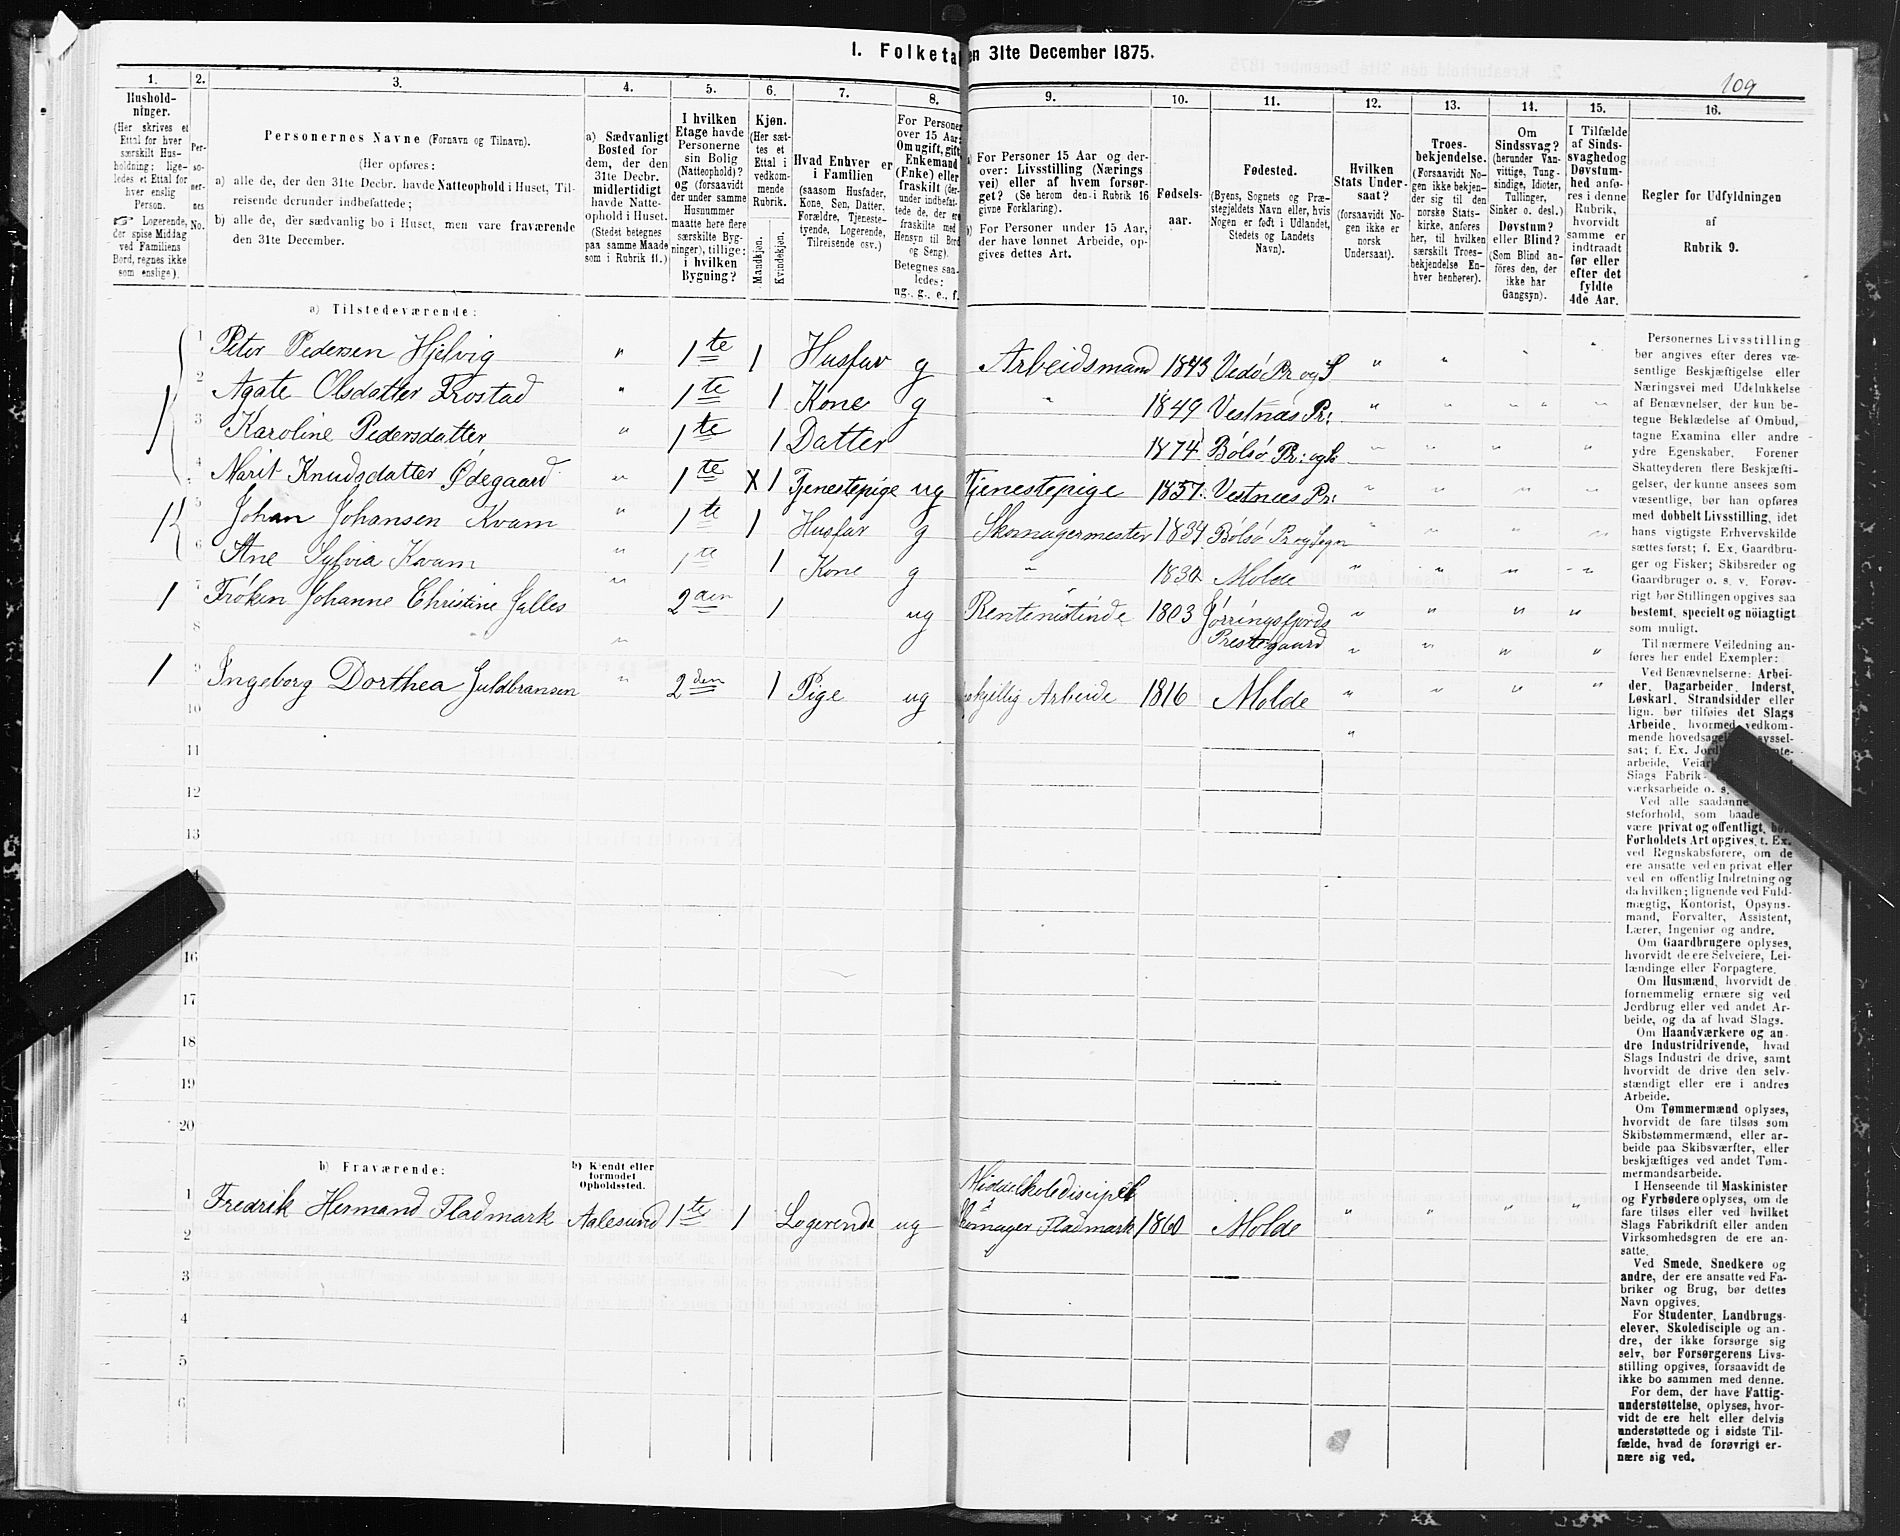 I. Folketa en 31te December 1875.
109
1. 2. 3. 4. 5. 6. 7. 8. 9. 10. 11. 12. 13. 14. 15. 16.
Hushold-
ninger.
(Her skrives et
Ettal for hver
særskilt Hus-
holdning; lige-
ledes et Ettal for
hver enslig
Person.
☞ Logerende,
der spise Middag
ved Familiens
Bord, regnes ikke
som enslige).
Per-
so-
ner-
nes
No.
Personernes Navne (Fornavn og Tilnavn).
(Her opføres:
a) alle de, der den 31te Decbr. havde Natteophold i Huset, Til-
reisende derunder indbefattede;
b) alle de, der sædvanlig bo i Huset, men vare fraværende
den 31te December.
a) Sædvanligt
Bosted for
dem, der den
31te Decbr.
midlertidigt
havde Natte-
ophold i Huset.
(Stedet betegnes
paa samme Maade
som i Rubrik 11.)
I hvilken
Etage havde
Personerne
sin Bolig
(Natteophold)?
og (forsaavidt
der under samme
Husnummer
maatte høre flere
særskilte Byg-
ninger), tillige:
i hvilken
Bygning?
Kjøn.
(Her sæt-
tes et
Ettal i
vedkom-
mende
Rubrik.
Mandkjøn.
Kvindekjøn.
Hvad Enhver er
i Familien
(saasom Husfader,
Kone, Søn, Datter,
Forældre, Tjeneste-
tyende, Logerende,
Tilreisende osv.)
For Personer
over 15 Aar:
Om ugift, gift,
Enkemand
(Enke) eller
fraskilt (der-
under indbefat-
tede de, der ere
fraskilte med
Hensyn til Bord
og Seng).
Betegnes saa-
ledes:
ug., g., e., f.
For Personer 15 Aar og der-
over: Livsstilling (Nærings
vei) eller af hvem forsør-
get? (Se herom den i Rubrik 16
givne Forklaring).
For Personer under 15 Aar,
der have lønnet Arbeide, op-
gives dettes Art.
Fødsels-
aar.
Fødested.
(Byens, Sognets og Præ-
stegjeldets Navn eller, hvis
Nogen er født i Udlandet,
Stedets og Landets
Navn).
Hvilken
Stats Under-
saat?
(forsaavidt No-
gen ikke er
norsk
Undersaat).
Troes-
bekjendelse.
(Forsaavidt No-
gen ikke bekjen-
der sig til den
norske Stats-
kirke, anføres
her, til hvilken
særskilt Troes-
bekjendelse En-
hver henhører).
Om
Sindssvag?
(herunder Van-
vittige, Tung-
sindige, Idioter,
Tullinger,
Sinker o. desl.)
Døvstum?
eller Blind?
(Som Blind an-
føres den, der
ikke har
Gangsyn).
I Tilfælde
af Sinds-
svaghed og
Døvstum-
hed anfø-
res i denne
Rubrik,
hvorvidt
samme er
indtraadt
før eller
efter det
fyldte
4de Aar.
Regler for Udfyldningen
af
Rubrik 9.
a) Tilstedeværende:
1 Peter Pedersen Hjelvig " 1te 1 Husfar g Arbeidsmand 1843 Vedø Pr og S " " " "
2 Agate Olsdatter Frostad " 1te 1 Kone g " 1849 Vestnæs Pr: " " " "
1 3 Karoline Pedersdatter " 1te 1 Datter 1874 Bolsø Pr: og S " " " "
4 Marit Knudsdatter Ødegaard " 1te X 1 Tjenestepige ug Tjenestepige 1857 Vestnæs Pr: " " " "
1 5 Johan Johansen Kvam " 1te 1 Husfar g Skomagermester 1834 Bolsø Pr og Sogn " " " "
6 Ane Sylvia Kvam " 1te 1 Kone g " 1830 Molde " " " "
1 7 Frøken Johanne Christine Jalles " 2den 1 ug Rentenistinde 1803 Jørringsfjords " " " "
8 " " Prestegaard " " " "
1 9 Ingeborg Dorthea Guldbransen " 2den 1 Pige ug skjellig Arbeide 1816 Molde " " " "
10 "
11
12
13
16
17
18
19
20
b) Fraværende:
b) Kjendt eller
formodet
Opholdssted.
Middelskolediscipel
1 Fredrik Hermand Fladmark Aalesund 1te 1 Logerende ug Skomager Fladmark 1860 Molde " " " "
2
3
4
5
6
Personernes Livsstilling
bør angives efter deres væ-
sentlige Beskjæftigelse eller
Næringsvei med Udelukkelse
af Benævnelser, der kun be-
tegne Beklædelse af Ombud,
tagne Examina eller andre
ydre Egenskaber. Forener
Skatteyderen flere Beskjæfti-
gelser, der kunne ansees som
væsentlige, bør han opføres
med dobbelt Livsstilling, idet
hans vigtigste Erhvervskilde
sættes først; f. Ex. Gaardbru-
ger og Fisker; Skibsreder og
Gaardbruger o. s. v. Forøv-
rigt bør Stillingen opgives saa
bestemt, specielt og nøiagtigt
som muligt.
Til nærmere Veiledning an-
føres her endel Exempler:
Ved Benævnelserne: Arbei-
der, Dagarbeider, Inderst,
Løskarl, Strandsidder eller
lign. bør tilføies det Slags
Arbeide, hvormed vedkom-
mende hovedsagel syssel-
sat; f. Ex. Jord
arbeide, Veiar
Slags Fabrik-
værksarbeide o. s.
Ved alle saadanne
steforhold, som baade
være privat og offentligt, bør
Forholdets Art opgives, f. Ex.
ved Regnskabsførere, om de
ere ansatte ved en privat eller
ved en offentlig Indretning og
da hvilken; lignende ved Fuld-
mægtig, Kontorist, Opsyns-
mand, Forvalter, Assistent,
Lærer, Ingeniør og andre.
Om Gaardbrugere oplyses,
hvorvidt de ere Selveiere, Lei-
lændinge eller Forpagtere.
Om Husmænd, hvorvidt de
fornemmelig ernære sig ved
Jordbrug eller ved andet Ar-
beide, og da af hvad Slags.
Om Haandværkere og an-
dre Industridrivende, hvad
Slags Industri de drive, samt
hvorvidt de drive den selv-
stændigt eller ere i andres
Arbeide.
Om Tømmermænd oplyses,
hvorvidt de fare tilsøs som
Skibstømmermænd, eller ar-
beide paa Skibsværfter, eller
beskjæftiges ved andet Tøm-
mermandsarbeide.
I Henseende til Maskinister
og Fyrbødere oplyses, om de
fare tilsøs eller ved hvilket
Slags Fabrikdrift eller anden
Virksomhedsgren de ere an-
satte.
Ved Smede, Snedkere og
andre, der ere ansatte ved Fa-
briker og Brug, bør dettes
Navn opgives.
For Studenter, Landbrugs-
elever, Skoledisciple og an-
dre, der ikke forsørge sig
selv, bør Forsørgerens Livs-
stilling opgives, forsaavidt de
ikke bo sammen med denne.
For dem, der have Fattig-
understøttelse, oplyses, hvor-
vidt de ere helt eller delvis
understøttede og i sidste Til-
fælde, hvad de forøvrigt er-
nære sig ved.